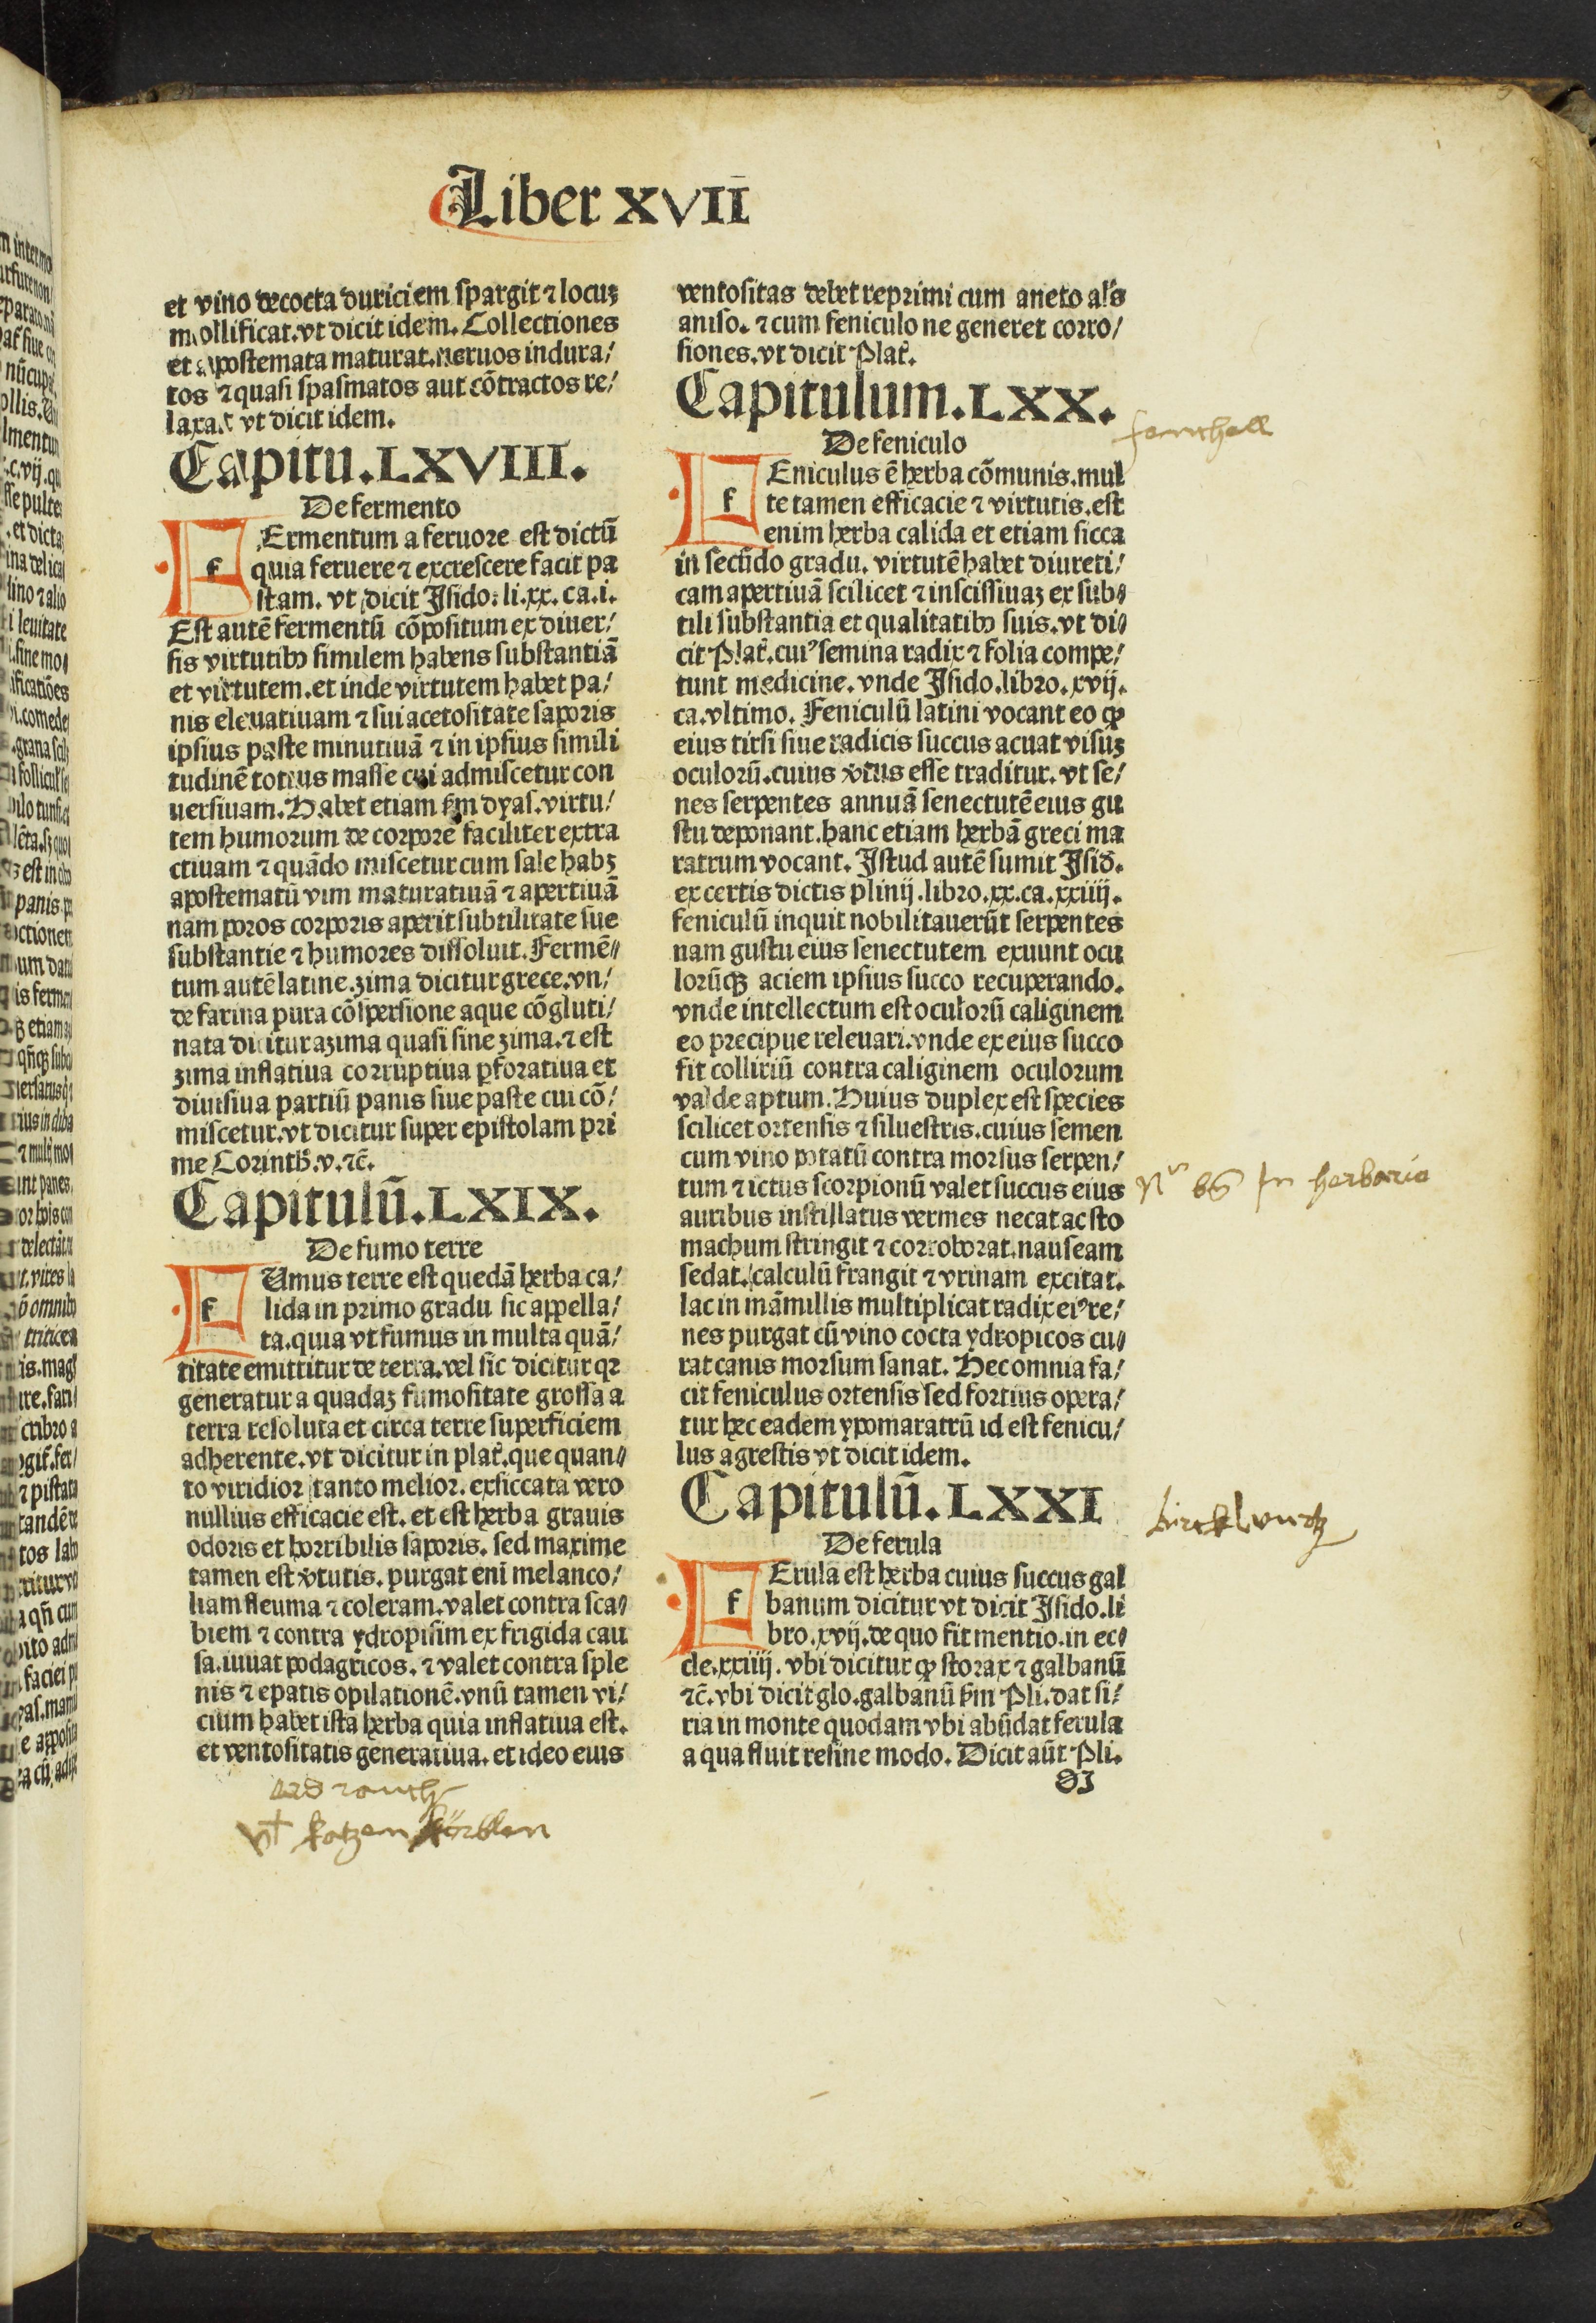 Liber XVII
et vino decocta duriciem spargit ⁊ locuꝫ
mollificat. vt dicit idem. Collectiones
et apostemata maturat. neruos indura/
tos ⁊ quasi spasmatos aut cōtractos re/
laxat vt dicit idem.
Capitu. LXVIII.
De fermento
f
Ermentum a feruore est dictū
quia feruere ⁊ excrescere facit pa
stam. vt dicit Isido. li. xx. ca. i.
Est autē fermentū cōpositum ex diuer/
sis virtutibꝰ similem habens substantiā
et virtutem. et inde virtutem habet pa/
nis eleuatiuam ⁊ sui acetositate saporis
ipsius paste minutiuā ⁊ in ipsius simili
tudinē totius masse cui admiscetur con
uersiuam. Habet etiam ẜm dyas. virtu/
tem humorum de corpore faciliter extra
ctiuam ⁊ quādo miscetur cum sale habꝫ
apostematū vim maturatiuā ⁊ apertiuā
nam poros corporis aperit subtilitate sue
substantie ⁊ humores dissoluit. Fermē//
tum autē latine. zima dicitur grece. vn/
de farina pura cōspersione aque cōgluti/
nata dicitur azima quasi sine zima. ⁊ est
zima inflatiua corruptiua ꝑforatiua et
diuisiua partiū panis siue paste cui cō/
miscetur. vt dicitur super epistolam pri
me Corinth̄. v. ⁊c̄.
Capitulū. LXIX.
De fumo terre
f
Umus terre est quedā herba ca/
lida in primo gradu sic appella/
ta. quia vt fumus in multa quā/
titate emittitur de terra. vel sic dicitur qꝛ
generatur a quadaꝫ fumositate grossa a
terra resoluta et circa terre superficiem
adherente. vt dicitur in plat̄. que quan//
to viridior tanto melior. exsiccata vero
nullius efficacie est. et est herba grauis
odoris et horribilis saporis. sed maxime
tamen est v̄tutis. purgat eni melanco/
liam fleuma ⁊ coleram. valet contra sca//
biem ⁊ contra ydropisim ex frigida cau
sa. iuuat podagricos. ⁊ valet contra sple
nis ⁊ epatis opilationē. vnū tamen vi/
cium habet ista herba quia inflatiua est.
et ventositatis generatiua. et ideo eius
erd rauch
vł katzen körblen
ventositas debet reprimi cum aneto als̄
aniso. ⁊ cum feniculo ne generet corro/
siones. vt dicit Plat̄.
Capitulum. LXX.
fenchell
De feniculo
f
Eniculus ē herba cōmunis. mul
te tamen efficacie ⁊ virtutis. est
enim herba calida et etiam sicca
in secūdo gradu. virtutē habet diureti/
cam apertiuā scilicet ⁊ inscissiuaꝫ ex sub//
tili substantia et qualitatibꝰ suis. vt di//
cit Plat̄. cuiꝰ semina radix ⁊ folia compe/
tunt medicine. vnde Isido. libro. xvij.
ca. vltimo. Feniculū latini vocant eo ꝙ
eius tirsi siue radicis succus acuat visuꝫ
oculorū. cuius v̄tus esse traditur. vt se/
nes serpentes annuā senectutē eius gu
stu deponant. hanc etiam herbā greci ma
ratrum vocant. Istud autē sumit Isid̄.
ex certis dictis plinij. libro. xx. ca. xxiiij.
feniculū inquit nobilitauerūt serpentes
nam gustu eius senectutem exuunt ocu
lorūqꝫ aciem ipsius succo recuperando.
vnde intellectum est oculorū caliginem
eo precipue releuari. vnde ex eius succo
fit colliriū contra caliginem oculorum
valde aptum. Huius duplex est species
scilicet ortensis ⁊ siluestris. cuius semen
cum vino potatū contra morsus serpen/
tum ⁊ ictus scorpionū valet succus eius
In herbario
auribus instillatus vermes necat ac sto
machum stringit ⁊ corroborat. nauseam
sedat. calculū frangit ⁊ vrinam excitat.
lac in māmillis multiplicat radix eiꝰ re/
nes purgat cū vino cocta ydropicos cu//
rat canis morsum sanat. Hec omnia fa/
cit feniculus ortensis sed fortius opera/
tur hec eadem ypomaratrū id est fenicu/
lus agrestis vt dicit idem.
Capitulū. LXXI
De ferula
f
Erula est herba cuius succus gal
banum dicitur vt dicit Isido. li
bro. xvij. de quo fit mentio. in ec//
cle. xxiiij. vbi dicitur ꝙ storax ⁊ galbanū
⁊c̄. vbi dicit glo. galbanū ẜm Pli. dat si/
ria in monte quodam vbi abūdat ferula
a qua fluit resine modo. Dicit aūt Pli.